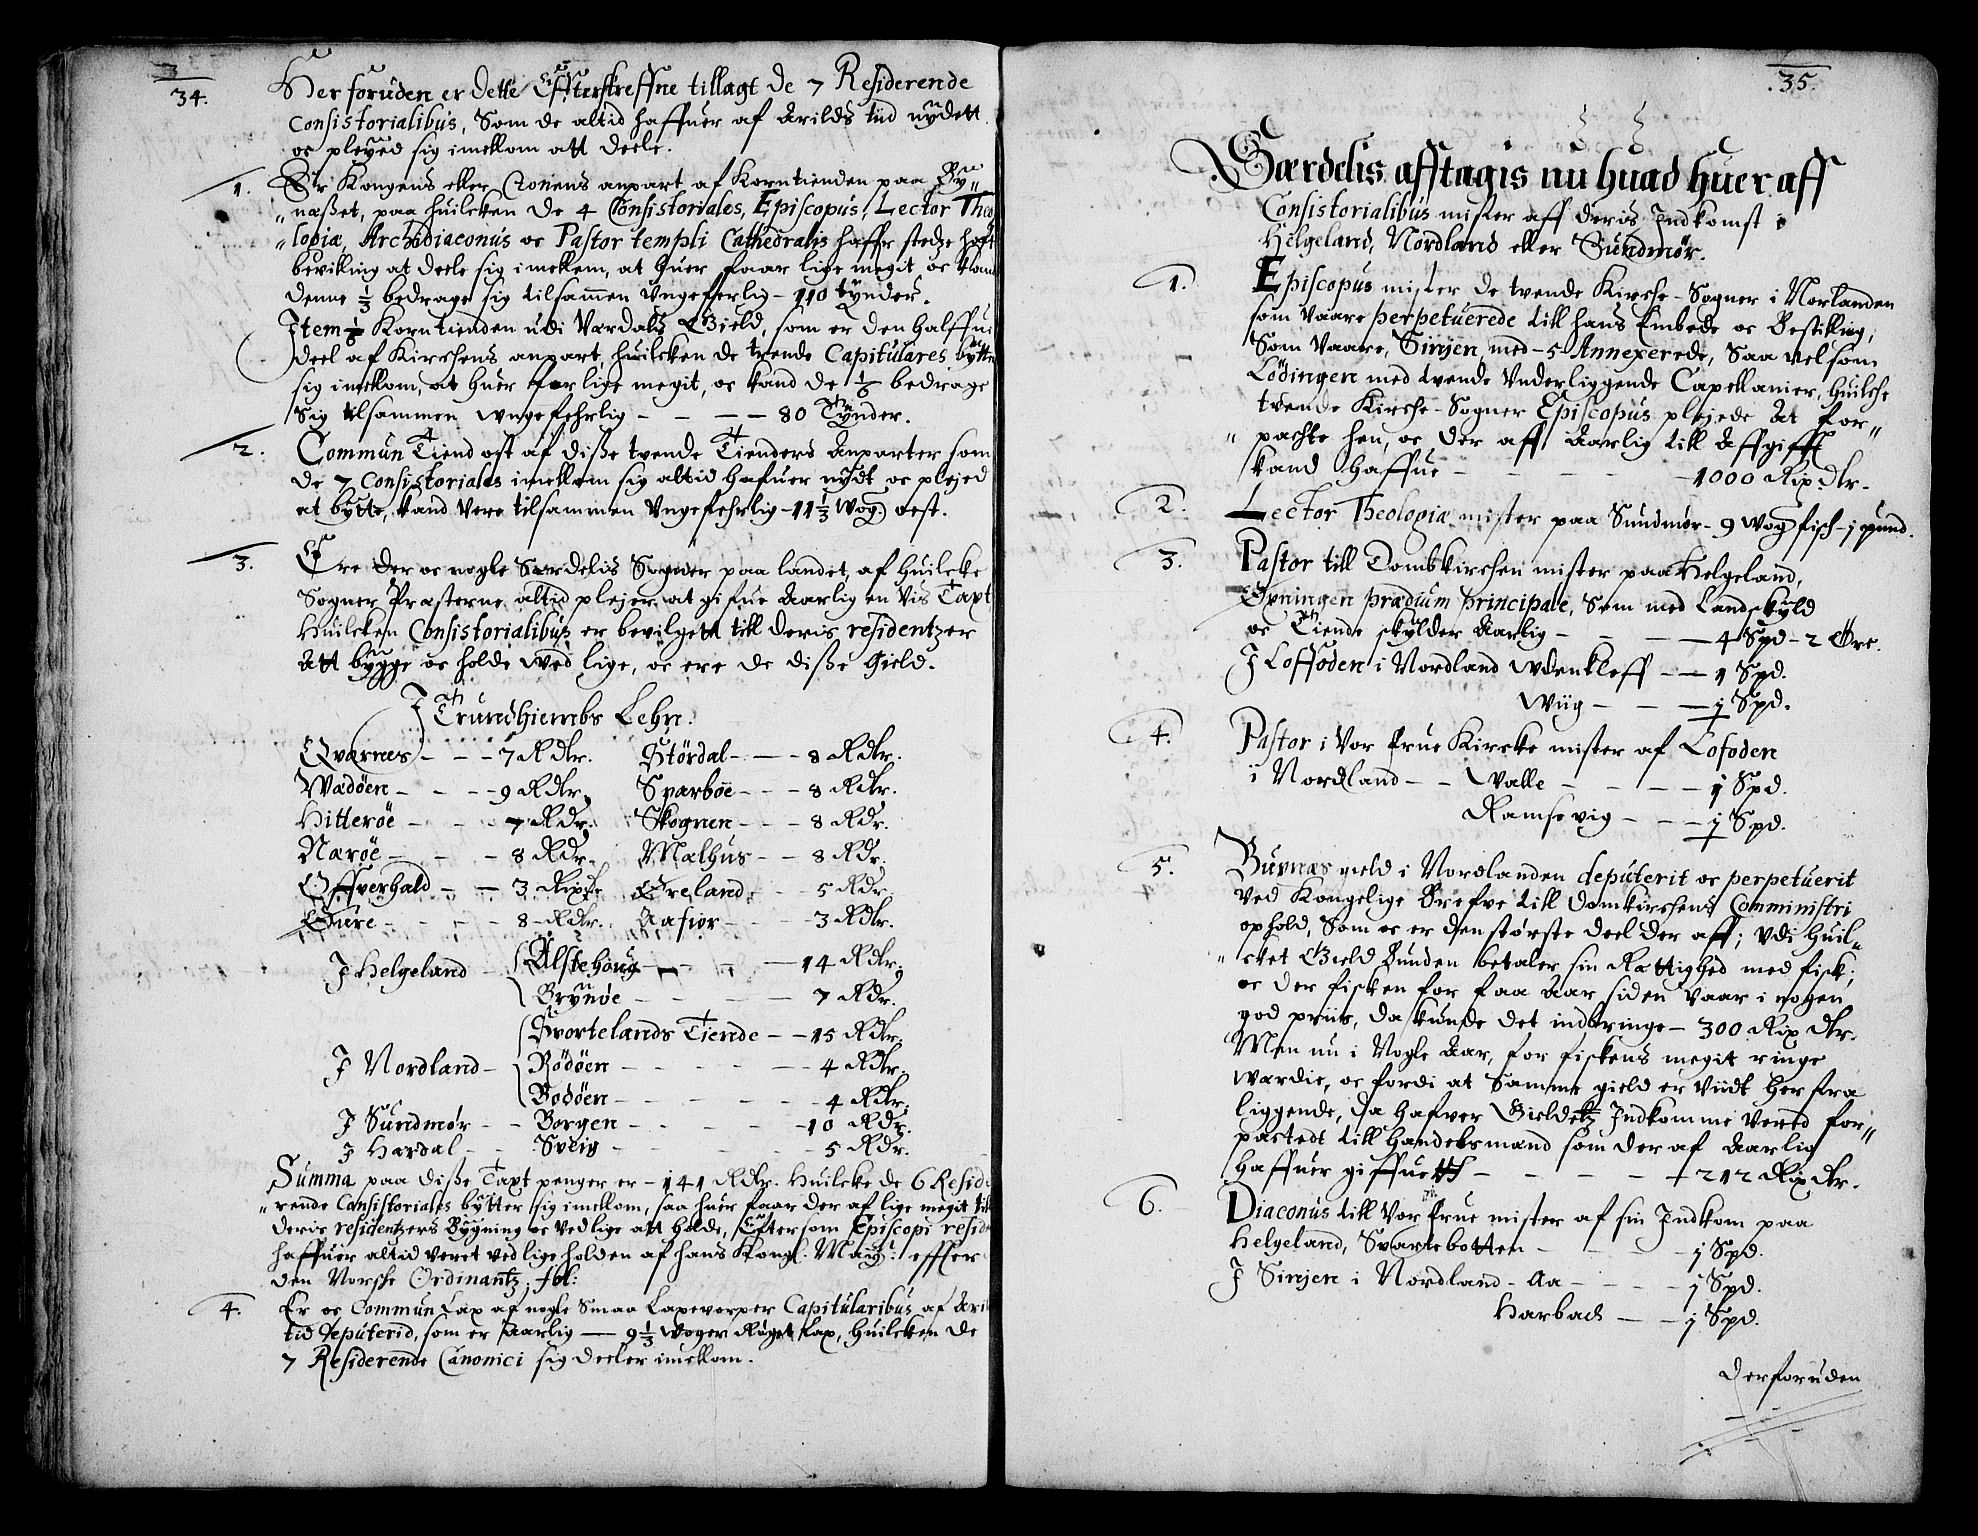 34.
Her foruden er dette Effterskreffne tillagt de 7 Residerende
Consistorialibus, Som de altid haffuer af Arilds tiid nydett
oc pleyed sig imellom att deele.
1. Er Kongens eller Cronens anpart af Korntienden paa By„
„næßet, paa huilcken de 4 Consistoriales, Episcopus, Lector Theo
„logiæ, Archidiaconus oc Pastor templi Cathedralis haffr stedze hafft
bevilling at deele sig imellem, at huer faar lige megit oc kand
denne 1/3 bedrage sig tilsammen Ungeferlig – 110 tynder.
Item 1/6 Korntienden udi Værdals Gield, som er den halffue
deel af Kirchens anpart, huilcken de trende Capitulares bytte
sig imellom, at huer far lige megit, oc kand de 1/6 bedrage
Sig tilsammen ungefehrlig – – – 80 Tynder.
2. Commun Tiend ost af diße tvende Tienders Anparter som
de 7 Consistoriales imellom sig altid hafuer nydt oc plejed
at bytte, kand vere tilsammen Ungefehrlig – 11 1/3 Wog. oest.
3. Ere der oc nogle Særdelis Sogner paa landet, af huilcke
Sogner Præsterne altid plejer at gifue Aarlig en Vis Taxt
Huilcken Consistorialibus er bevilgett till deris residentzer
Att bygge oc holde ved lige, oc ere de diße Gield.
J Trundhiembs Lehn.
Qværnes – – – 7 Rdlr. Størdal – – – 8 Rdlr.
Wædöen – – – 9 Rdlr. Sparböe – – – 8 Rdlr.
Hitteröe – – 7 Rdr. Skognen – – – 8 Rdr.
Næröe – – – 8 Rdr. Mælhus – – 8 Rdr.
Offverhald – – 3 Rixdr. Øreland – – 5 Rdr.
– – – 8 Rdlr. Aafior – – – 3 Rdlr.
J Helgeland – Alstehoug – – – 14 Rdlr.
Brynøe – – – – 7 Rdr.
Svortelands Tiende – – 15 Rdlr.
J Nordland – Rödöen – – – – 4 Rdlr.
Bodöen – – – – – 4 Rdlr.
J Sundmør – – Borgen – – – – 10 Rdr.
J Hærdal – – Sveig – – – – 5 Rdr.
Summa paa diße Taxt penger er – 141 Rdlr. Huilcke de 6 Reside
„rende Consistoriales bytter sig imellom, saa huer faar der af lige megit till
deris residentzers Bygning oc vedlige att holde, Efftersom Episcopi reside
haffuer altid veret vedlige holden af hans Kongl. May: effter
den Norske Ordinantz. fol:
4. Er oc Commun Lax af nogle Smaa Laxevorper Capitularibus af Aril
tid deputerid, som er Aarlig – 9 1/3 woger Røget Lax, Huilcken de
7 Residerende Canonici sig deeler imellom.
35.
Særdelis afftagis nu huad huer aff
Consistorialibus mister aff deris Indkomst i
Helgeland, Nordland eller Sundmør.
1. Episcopus mister de tvende Kirche-Sogner i Norlanden
som vaare perpetuerede till hans Embede oc Bestilling,
Som vaare, Sinjen, med – 5 Annexerede, Saa vel som
Lödingen med tvende Underliggende Capellanier, huilche
tvende Kirche-Sogner Episcopus plejede at for„
„pachte hen, oc der aff Aarlig till Affgifft
kand haffue – – – – – 1000 Rix Dlr.
2. Lector Theologiæ mister paa Sundmør – 9 Wog fisch – j pund.
3. Pastor till Domkkirchen mister paa Helgeland,
Øxningen prædium principale, Som med Landskyld
oc Tiende skylder Aarlig – – – 4 Spd – 2 Øre.
J Loffoden i Nordland Udenkleff – – 1 Spd.
Wiig – – – j Spd.
4. Pastor i Vor frue Kircke mister af Lofoden
i Nordland – – Valle – – – – 1 Spd.
Ramsevig – – – j Spd.
5. Bufnæs gield i Nordlanden deputerit oc perpetuerit
Ved Kongelige Brefve till Domkirchens Comministri
ophold, Som oc er den største deel der aff; Udi huil„
„cket Gield Bunden betaler sin Rættighed med fisk;
oc der fisken for faa Aar siden vaar i nogen
god priis, da kunde det indbringe – 300 Rix Dlr.
Men nu i Nogle Aar, for fiskens megit ringe
wærdie, oc fordi at Samme gield er viidt her fra
liggende, da hafver Gieldetz Indkomme veret for„
pactedt till Handelsmænd som der af Aarlig
haffuer giffuett – – – – 212 Rixdlr.
6. Diaconus till Vor frue mister af sin Indkom paa
Helgeland, Svartebotten – – – – j Spd.
J Sinjen i Nordland – Aa – – – j Spd.
Harbach – – j Spd.
Derforuden